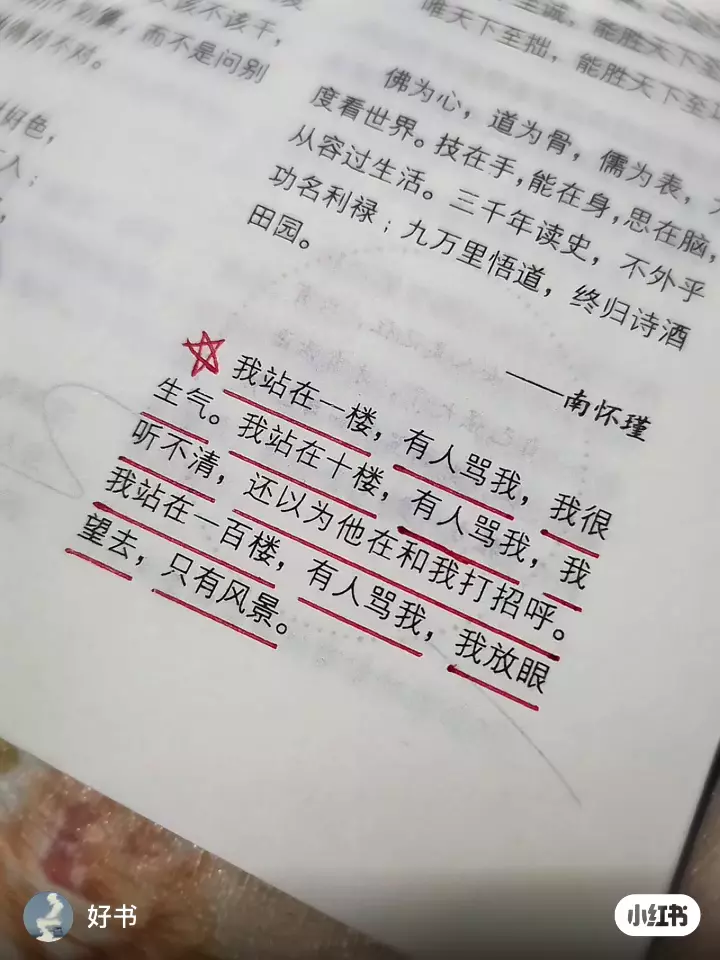 我该不该干，
而不是问别
对不对。
好色，
能胜天下至
唯天下至拙，能胜天下至
佛为心，道为骨，儒为表，
度看世界。技在手，能在身，思在脑，
从容过生活。三千年读史，不外乎
功名利禄；九万里悟道，终归诗酒
田园。
——南怀瑾
我站在一楼，有人骂我，我很
生气。我站在十楼，有人骂我，我
听不清，还以为他在和我打招呼。
我站在一百楼，有人骂我，我放眼
望去，只有风景。
好书
小红书